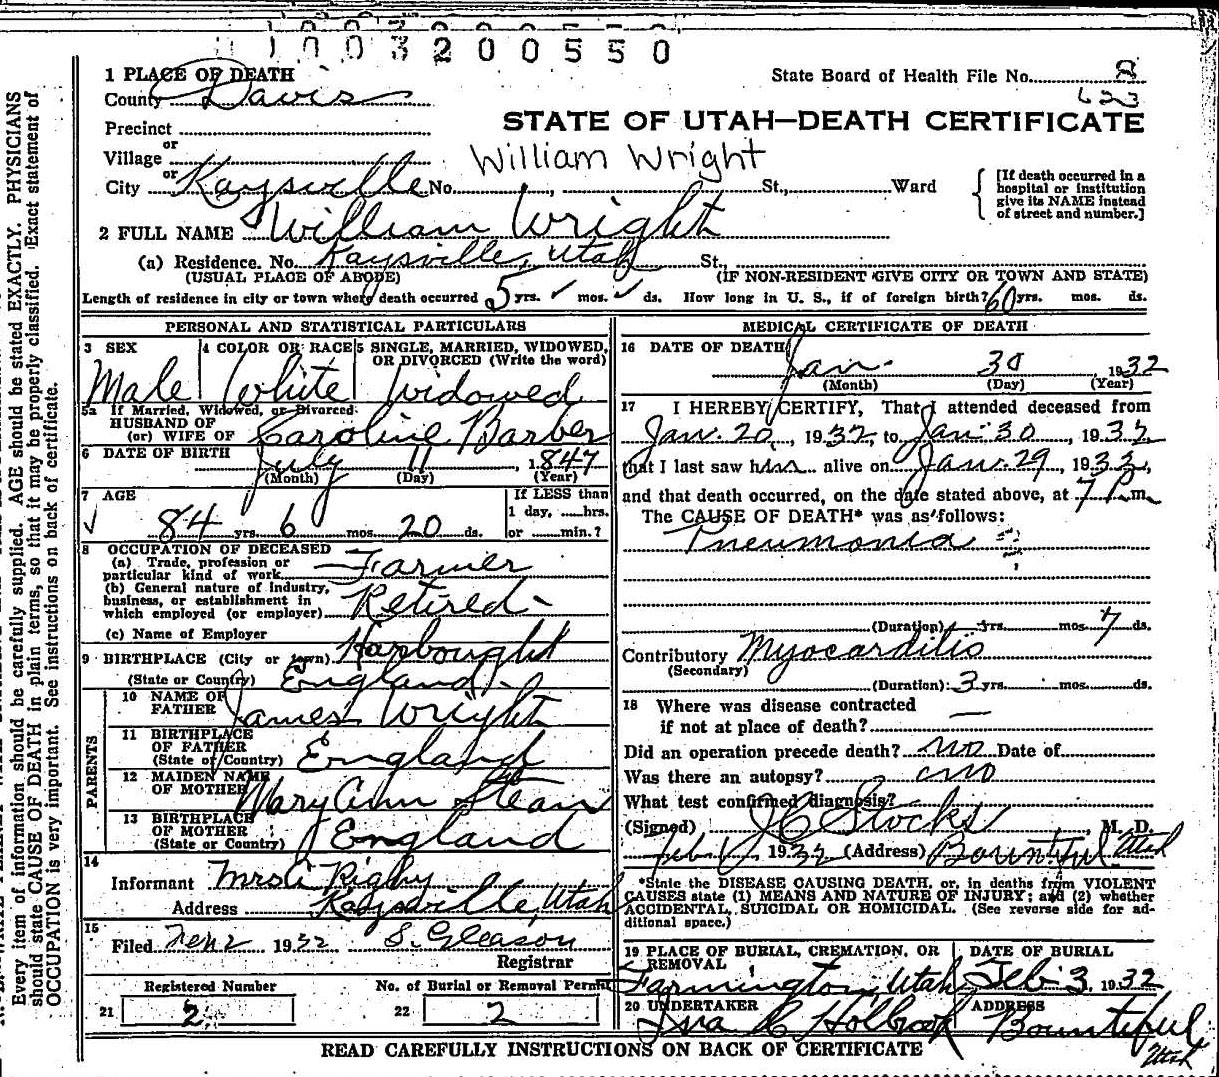 1003200550
1 PLACE OF DEATH
State Board of Health File No. 8
County Davis
623
Precinct
STATE OF UTAH—DEATH CERTIFICATE
or
Village
William Wright
or
City Kaysville No. St., Ward
[If death occurred in a
hospital or institution
give its NAME instead
of street and number.]
2 FULL NAME William Wright
(a) Residence. No. Kaysville, Utah St.,
(USUAL PLACE OF ABODE) (IF NON-RESIDENT GIVE CITY OR TOWN AND STATE)
Length of residence in city or town where death occurred 5 yrs. ✓ mos. ✓ ds. How long in U. S., if of foreign birth? 60 yrs. mos. ds.
PERSONAL AND STATISTICAL PARTICULARS
3 SEX 4 COLOR OR RACE 5 SINGLE, MARRIED, WIDOWED,
OR DIVORCED (Write the word)
Male White Widowed
5a If Married, Widowed, or Divorced
HUSBAND OF
(or) WIFE OF Caroline Barber
6 DATE OF BIRTH July 11, 1847
(Month) (Day) (Year)
7 AGE
If LESS than
1 day, hrs.
or min.?
✓ 84 yrs. 6 mos. 20 ds.
8 OCCUPATION OF DECEASED
(a) Trade, profession or
particular kind of work Farmer
(b) General nature of industry,
business, or establishment in
which employed (or employer) Retired
(c) Name of Employer
9 BIRTHPLACE (City or town) Harbought
(State or Country) England
PARENTS
10 NAME OF
FATHER James Wright
11 BIRTHPLACE
OF FATHER
(State or Country) England
12 MAIDEN NAME
OF MOTHER Mary Ann
13 BIRTHPLACE
OF MOTHER
(State or Country) England
14
Informant Mrs Rigby
Address Kaysville, Utah
15
Filed Feb 2 1932 S. Gleason
Registrar
Registered Number No. of Burial or Removal Permit
21 2 22 2
MEDICAL CERTIFICATE OF DEATH
16 DATE OF DEATH
Jan. 30, 1932
(Month) (Day) (Year)
17 I HEREBY CERTIFY, That I attended deceased from
Jan. 20, 1932, to Jan. 30, 1932
that I last saw him alive on Jan. 29, 1932,
and that death occurred, on the date stated above, at 7 P.m.
The CAUSE OF DEATH* was as follows:
Pneumonia
(Duration) yrs. mos. 7 ds.
Contributory Myocarditis
(Secondary)
(Duration) 3 yrs. mos. ds.
18 Where was disease contracted
if not at place of death? —
Did an operation precede death? no Date of
Was there an autopsy? no
What test confirmed diagnosis?
(Signed) J C Stocks, M. D.
Feb 1 1932 (Address) Bountiful Utah
*State the DISEASE CAUSING DEATH, or, in deaths from VIOLENT
CAUSES state (1) MEANS AND NATURE OF INJURY; and (2) whether
ACCIDENTAL, SUICIDAL OR HOMICIDAL. (See reverse side for ad-
ditional space.)
19 PLACE OF BURIAL, CREMATION, OR
REMOVAL
DATE OF BURIAL
Farmington, Utah Feb 3 1932
20 UNDERTAKER ADDRESS
Holbrook Bountiful
Utah
READ CAREFULLY INSTRUCTIONS ON BACK OF CERTIFICATE
Every item of information should be carefully supplied. AGE should be stated EXACTLY. PHYSICIANS
should state CAUSE OF DEATH in plain terms, so that it may be properly classified. Exact statement of
OCCUPATION is very important. See instructions on back of certificate.